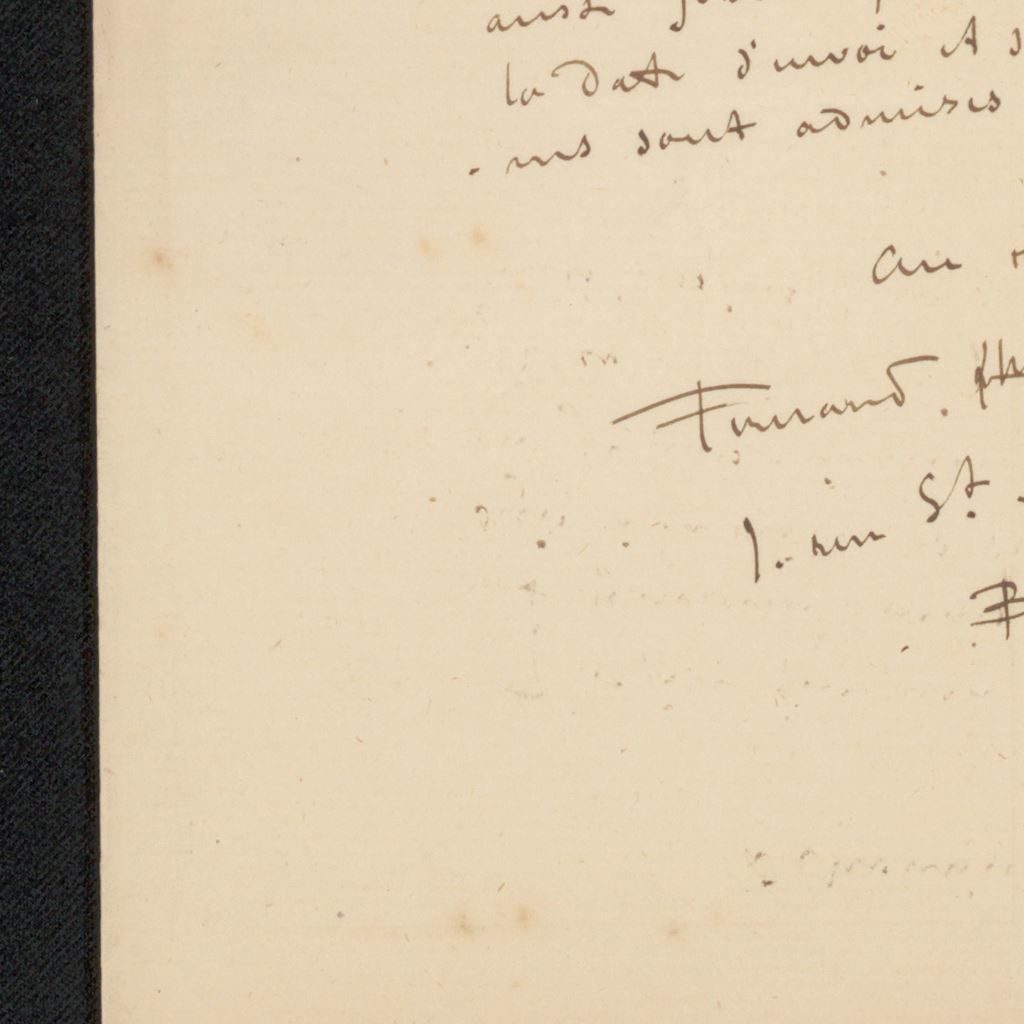 aussi
la date d'envoi et s
ms sont admises
au
Fernand.
1. rue St.
B